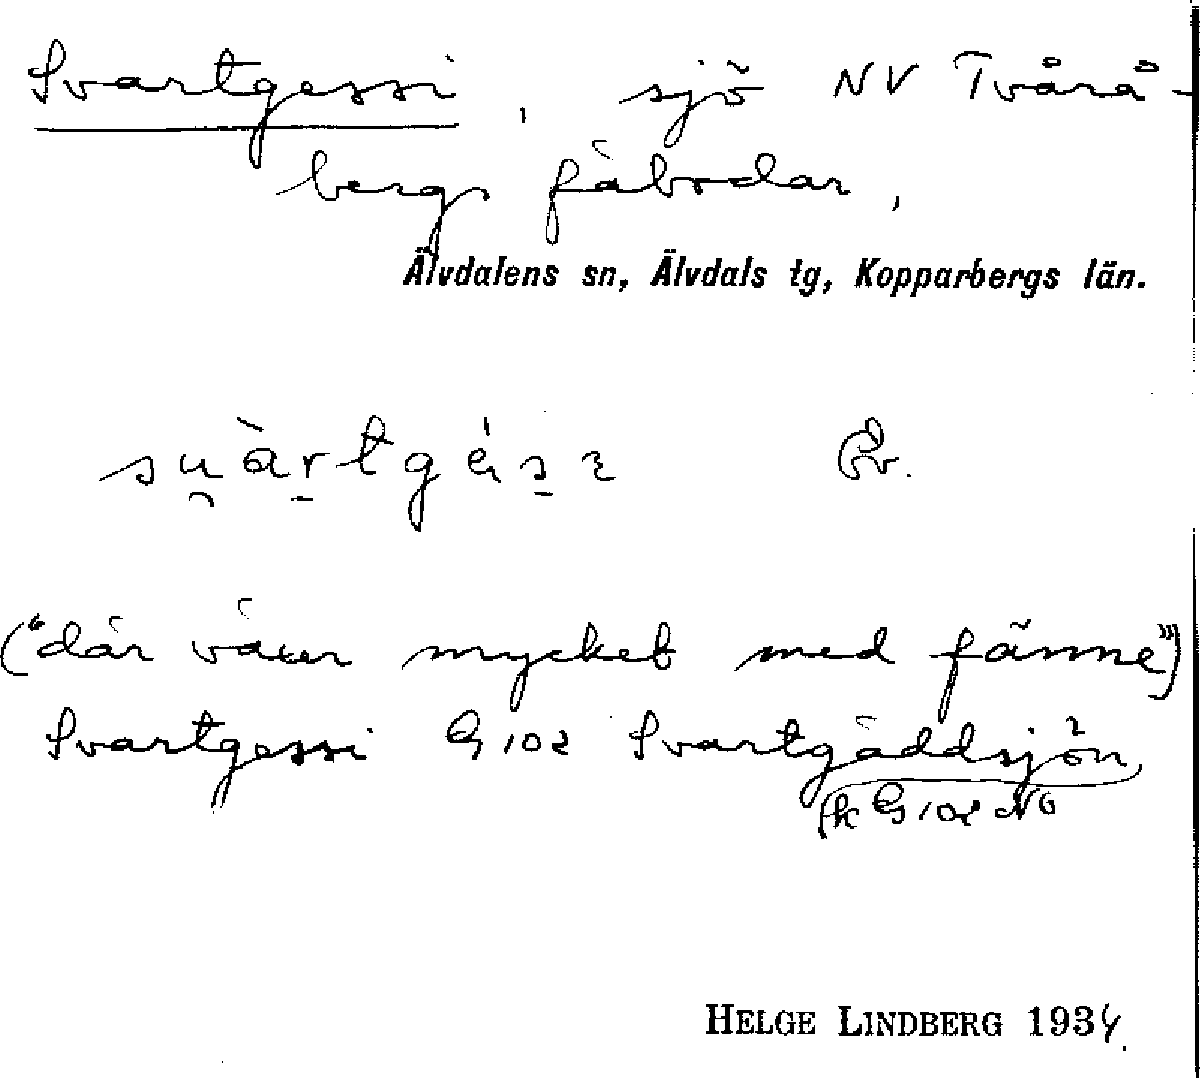 Svartgessi, sjö NV Tvårå-
bergs fäbodar,
Älvdalens sn, Älvdals tg, Kopparbergs län.
("där växer mycket med fänne")
Svartgessi G 102 Svartgäddsjön,
fk G 102 NO
HELGE LINDBERG 1934.